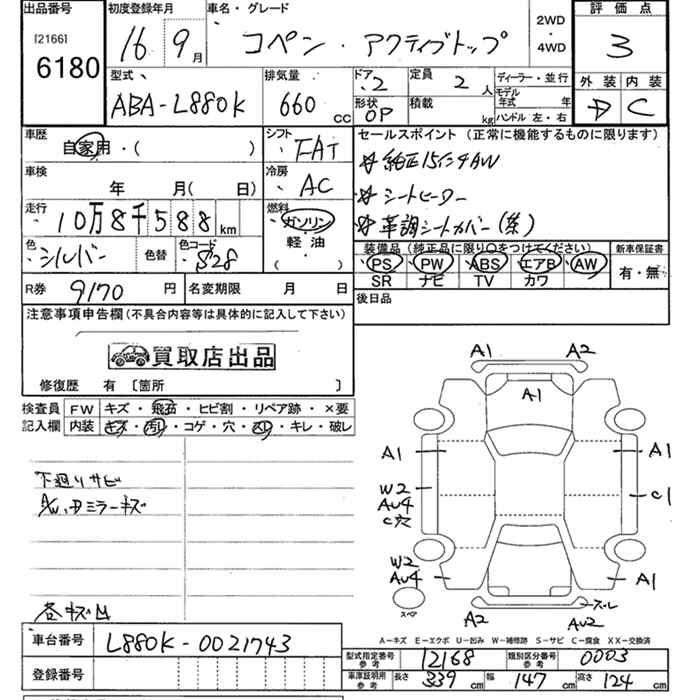 出品番号 初度登録年月 車名・グレード 2WD・4WD 評価点
[2166]
6180
16年9月 コペン・アクティブトップ 3
型式 排気量 ドア 2 定員 2人 ディーラー・並行 外装 内装
ABA-L880K 660cc 形状 OP 積載 kg モデル年式 年 C
ハンドル 左・右
車歴 自家用・( ) シフト FAT セールスポイント(正常に機能するものに限ります)
純正15インチAW
車検 年 月( 日) 冷房 AC
シートヒーター
走行 10万8千588km 燃料 ガソリン 軽油 ( )
革調シートカバー(茶)
色 シルバー 色替 色コード S28
装備品(純正品に限り○をつけてください) 新車保証書
PS PW ABS エアB AW 有・無
SR ナビ TV カワ
R券 9170円 名変期限 月 日 後日品
注意事項申告欄(不具合内容等は具体的に記入して下さい)
買取店出品
修復歴 有 〔箇所 〕
検査員 FW キズ・飛石・ヒビ割・リペア跡・×要
記入欄 内装 キズ・汚れ・コゲ・穴・スレ・キレ・破レ
下廻りサビ
AW、Dミラーキズ
各キズ凹
A1 A2
A1
A1 A1
W2 AU4 C穴 C1
W2 AU4 A1
スペア
A2 スレ AU2
A-キズ E-エクボ U-凹み W-補修跡 S-サビ C-腐食 XX-交換済
車台番号 L880K-0021743
型式指定番号 参考 12168 類別区分番号 参考 0003
登録番号
車庫証明用 参考 長さ 339cm 幅 147cm 高さ 124cm